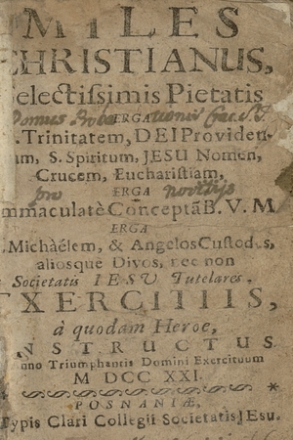 MILES
CHRISTIANUS,
electissimis Pietatis
Domus Proba tionis Soc. J.
ERGA
. Trinitatem, DEI Providen-
am, S. Spiritum, JESU Nomen,
Crucem, Eucharistiam,
pro ERGA Novitijs
mmaculatè Conceptã B. V. M
ERGA
. Michaêlem, & Angelos Custodes,
aliosque Divos, nec non
Societatis IESU Tutelares.
EXERCITIIS,
à quodam Heroe,
NSTRUCTUS
nno Triumphantis Domini Exercituum
M DCC XXI.
POSNANIÆ,
Typis Clari Collegii Societatis JEsu.